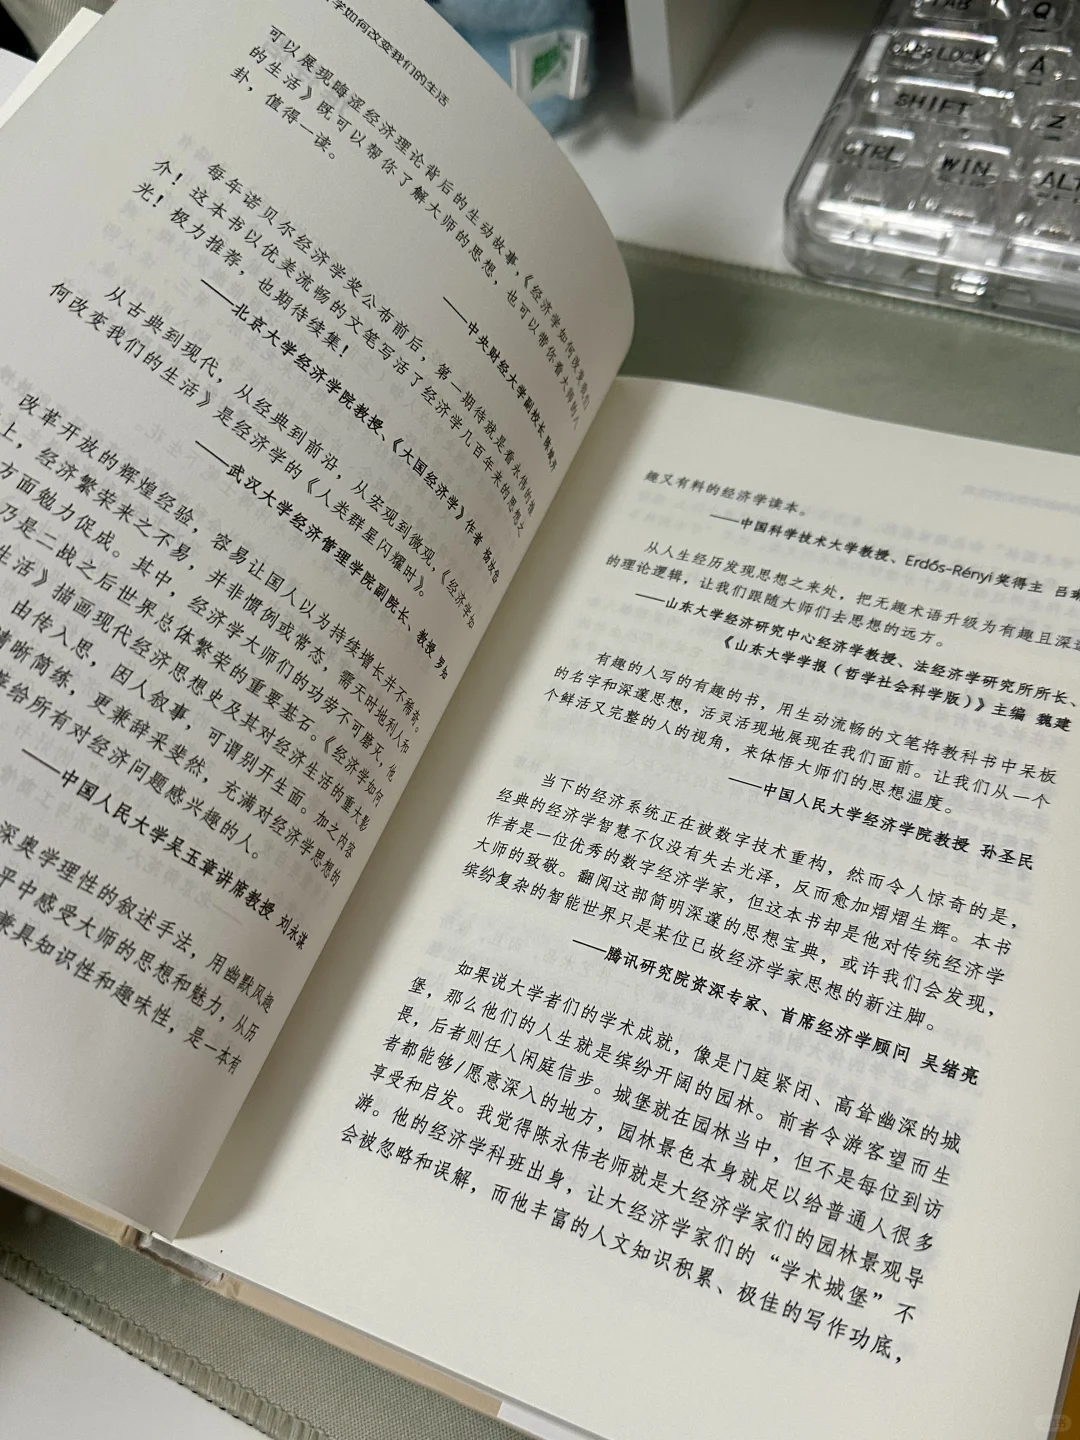 学如何改变我们的生活
可以展现晦涩经济理论背后的生动故事，《经济学如何改变我们
的生活》既可以帮你了解大师的思想，也可以带你看大师的八
卦，值得一读。
——中央财经大学副校长
每年诺贝尔经济学奖公布前后，第一期待就是看永伟的推
介！这本书以优美流畅的文笔写活了经济学几百年来的思想之
光！极力推荐，也期待续集！
——北京大学经济学院教授、《大国经济学》作者
从古典到现代，从经典到前沿，从宏观到微观，《经济学如
何改变我们的生活》是经济学的《人类群星闪耀时》。
——武汉大学经济管理学院副院长、教授 罗知
改革开放的辉煌经验，容易让国人以为持续增长并不稀奇。
上，经济繁荣来之不易，并非惯例或常态，需天时地利人和
方面勉力促成。其中，经济学大师们的功劳不可磨灭，他
乃是二战之后世界总体繁荣的重要基石。《经济学如何
生活》描画现代经济思想史及其对经济生活的重大影
由传入思，因人叙事，可谓别开生面。加之内容
清晰简练，更兼辞采斐然，充满对经济学思想的
荐给所有对经济问题感兴趣的人。
——中国人民大学吴玉章讲席教授 刘永谋
深奥学理性的叙述手法，用幽默风趣
平中感受大师的思想和魅力，从历
兼具知识性和趣味性，是一本有
趣又有料的经济学读本。
——中国科学技术大学教授、Erdős-Rényi奖得主 吕琳
从人生经历发现思想之来处，把无趣术语升级为有趣且深邃
的理论逻辑，让我们跟随大师们去思想的远方。
——山东大学经济研究中心经济学教授、法经济学研究所所长、
《山东大学学报（哲学社会科学版）》主编 魏建
有趣的人写的有趣的书，用生动流畅的文笔将教科书中呆板
的名字和深邃思想，活灵活现地展现在我们面前。让我们从一个
个鲜活又完整的人的视角，来体悟大师们的思想温度。
——中国人民大学经济学院教授 孙圣民
当下的经济系统正在被数字技术重构，然而令人惊奇的是，
经典的经济学智慧不仅没有失去光泽，反而愈加熠熠生辉。本书
作者是一位优秀的数字经济学家，但这本书却是他对传统经济学
大师的致敬。翻阅这部简明深邃的思想宝典，或许我们会发现，
缤纷复杂的智能世界只是某位已故经济学家思想的新注脚。
——腾讯研究院资深专家、首席经济学顾问 吴绪亮
如果说大学者们的学术成就，像是门庭紧闭、高耸幽深的城
堡，那么他们的人生就是缤纷开阔的园林。前者令游客望而生
畏，后者则任人闲庭信步。城堡就在园林当中，但不是每位到访
者都能够/愿意深入的地方，园林景色本身就足以给普通人很多
享受和启发。我觉得陈永伟老师就是大经济学家们的园林景观导
游。他的经济学科班出身，让大经济学家们的“学术城堡”不
会被忽略和误解，而他丰富的人文知识积累、极佳的写作功底，
TAB
Q
CAPS LOCK
A
SHIFT
Z
CTRL
WIN
ALT